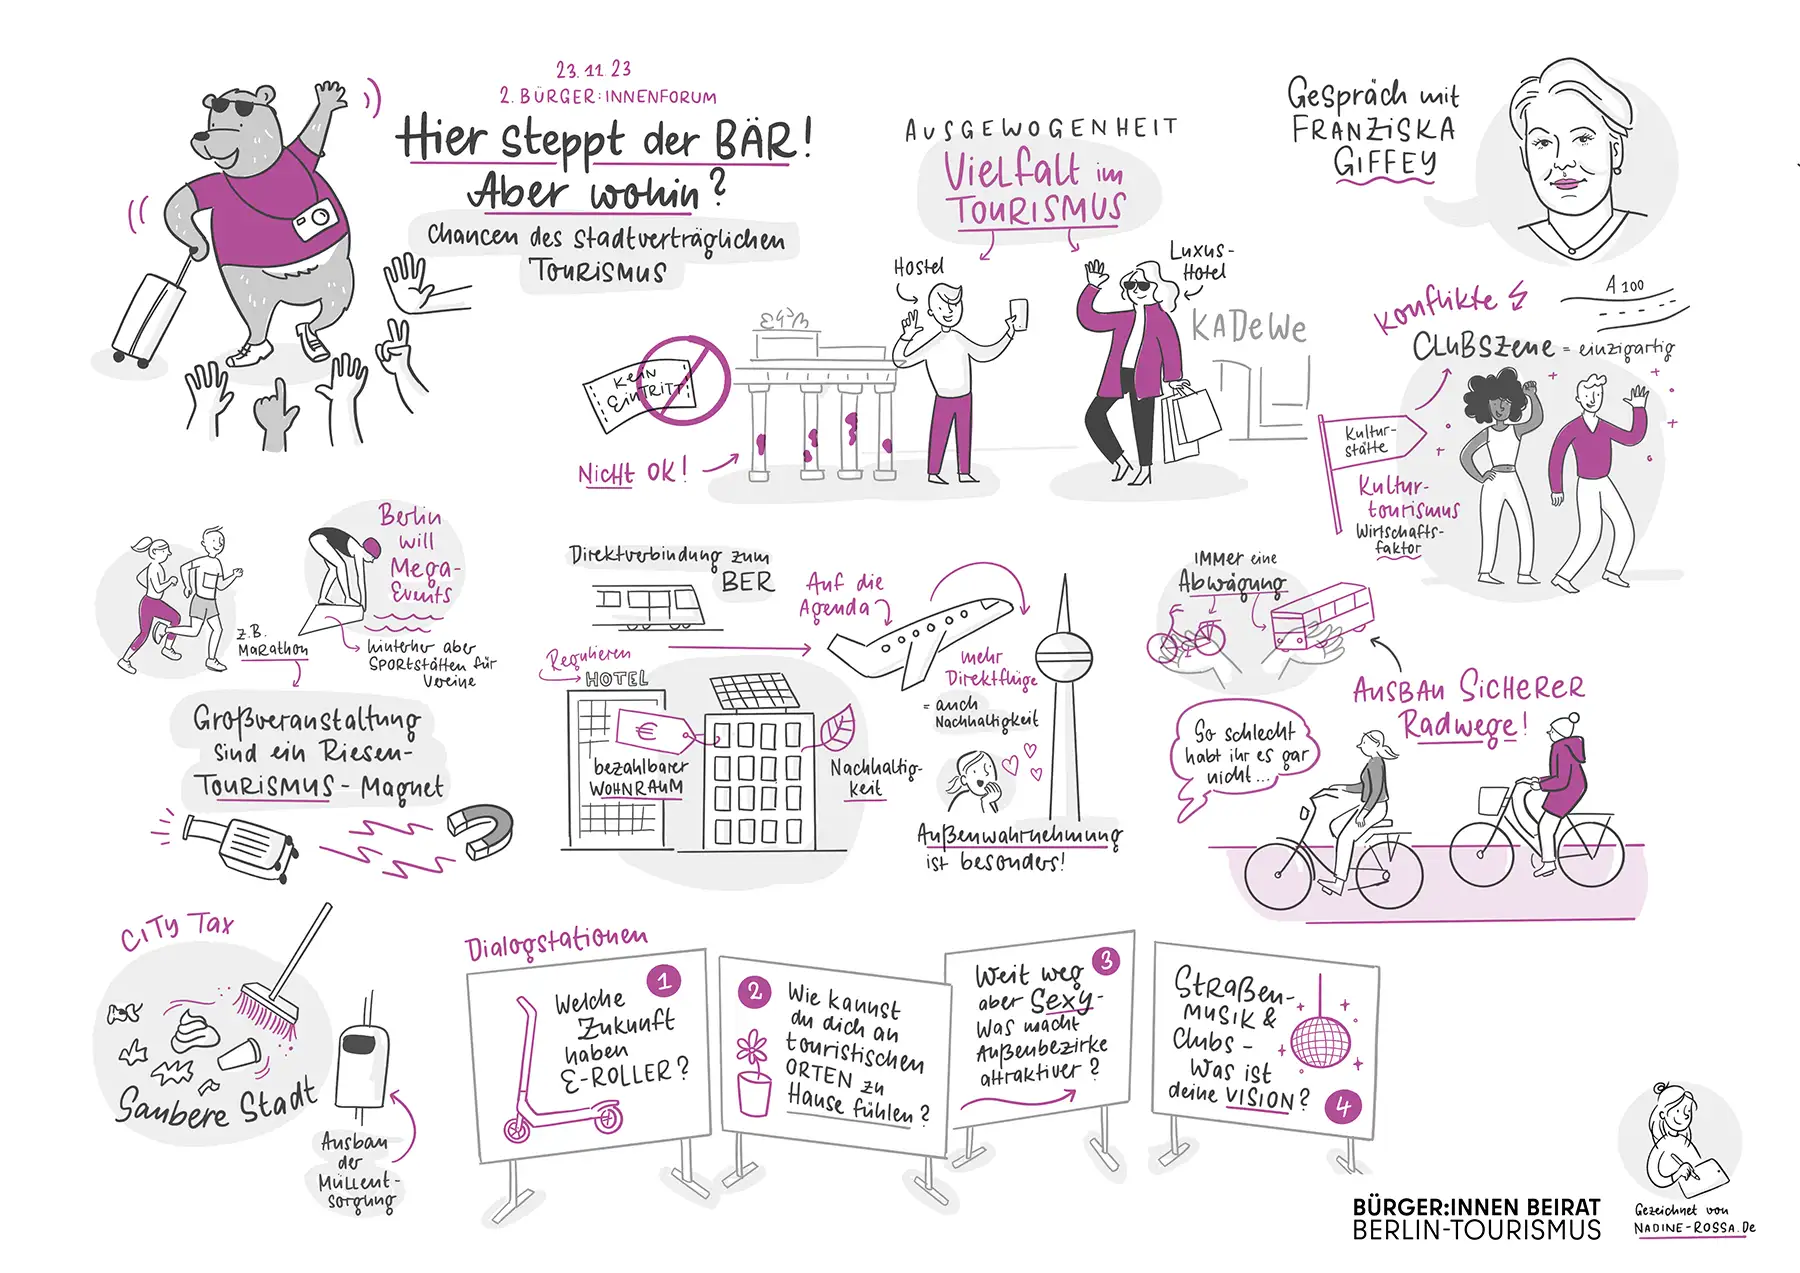 23.11.23
2. BÜRGER:INNENFORUM
Hier steppt der BÄR!
Aber wohin?
Chancen des stadtverträglichen
TOURISMUS
AUSGEWOGENHEIT
Vielfalt im
TOURISMUS
Hostel
Luxus-
Hotel
KADeWe
KEIN
EINTRITT
NICHT OK!
Gespräch mit
FRANZISKA
GIFFEY
Konflikte
A 100
CLUBSZENE = einzigartig
Kultur-
stätte
Kultur-
tourismus
Wirtschafts-
faktor
Berlin
will
Mega-
Events
z.B.
Marathon
hinterher aber
SPORTSTÄTTEN für
Vereine
Großveranstaltung
sind ein Riesen-
TOURISMUS - Magnet
Direktverbindung zum
BER
Auf die
Agenda
Regulieren
HOTEL
€
bezahlbarer
WOHNRAUM
Nachhaltig-
keit
mehr
Direktflüge
= auch
Nachhaltigkeit
Außenwahrnehmung
ist besonders!
IMMER eine
Abwägung
AUSBAU SICHERER
Radwege!
So schlecht
habt ihr es gar
nicht...
CITY TAX
Saubere Stadt
Ausbau
der
MÜLLENT-
sorgung
Dialogstationen
1
Welche
Zukunft
haben
E-ROLLER?
2
Wie kannst
du dich an
touristischen
ORTEN zu
Hause fühlen?
3
Weit weg
aber Sexy-
Was macht
Außenbezirke
attraktiver?
STRAßEN-
MUSIK &
Clubs -
Was ist
deine VISION?
4
BÜRGER:INNEN BEIRAT
BERLIN-TOURISMUS
Gezeichnet von
NADINE-ROSSA.De